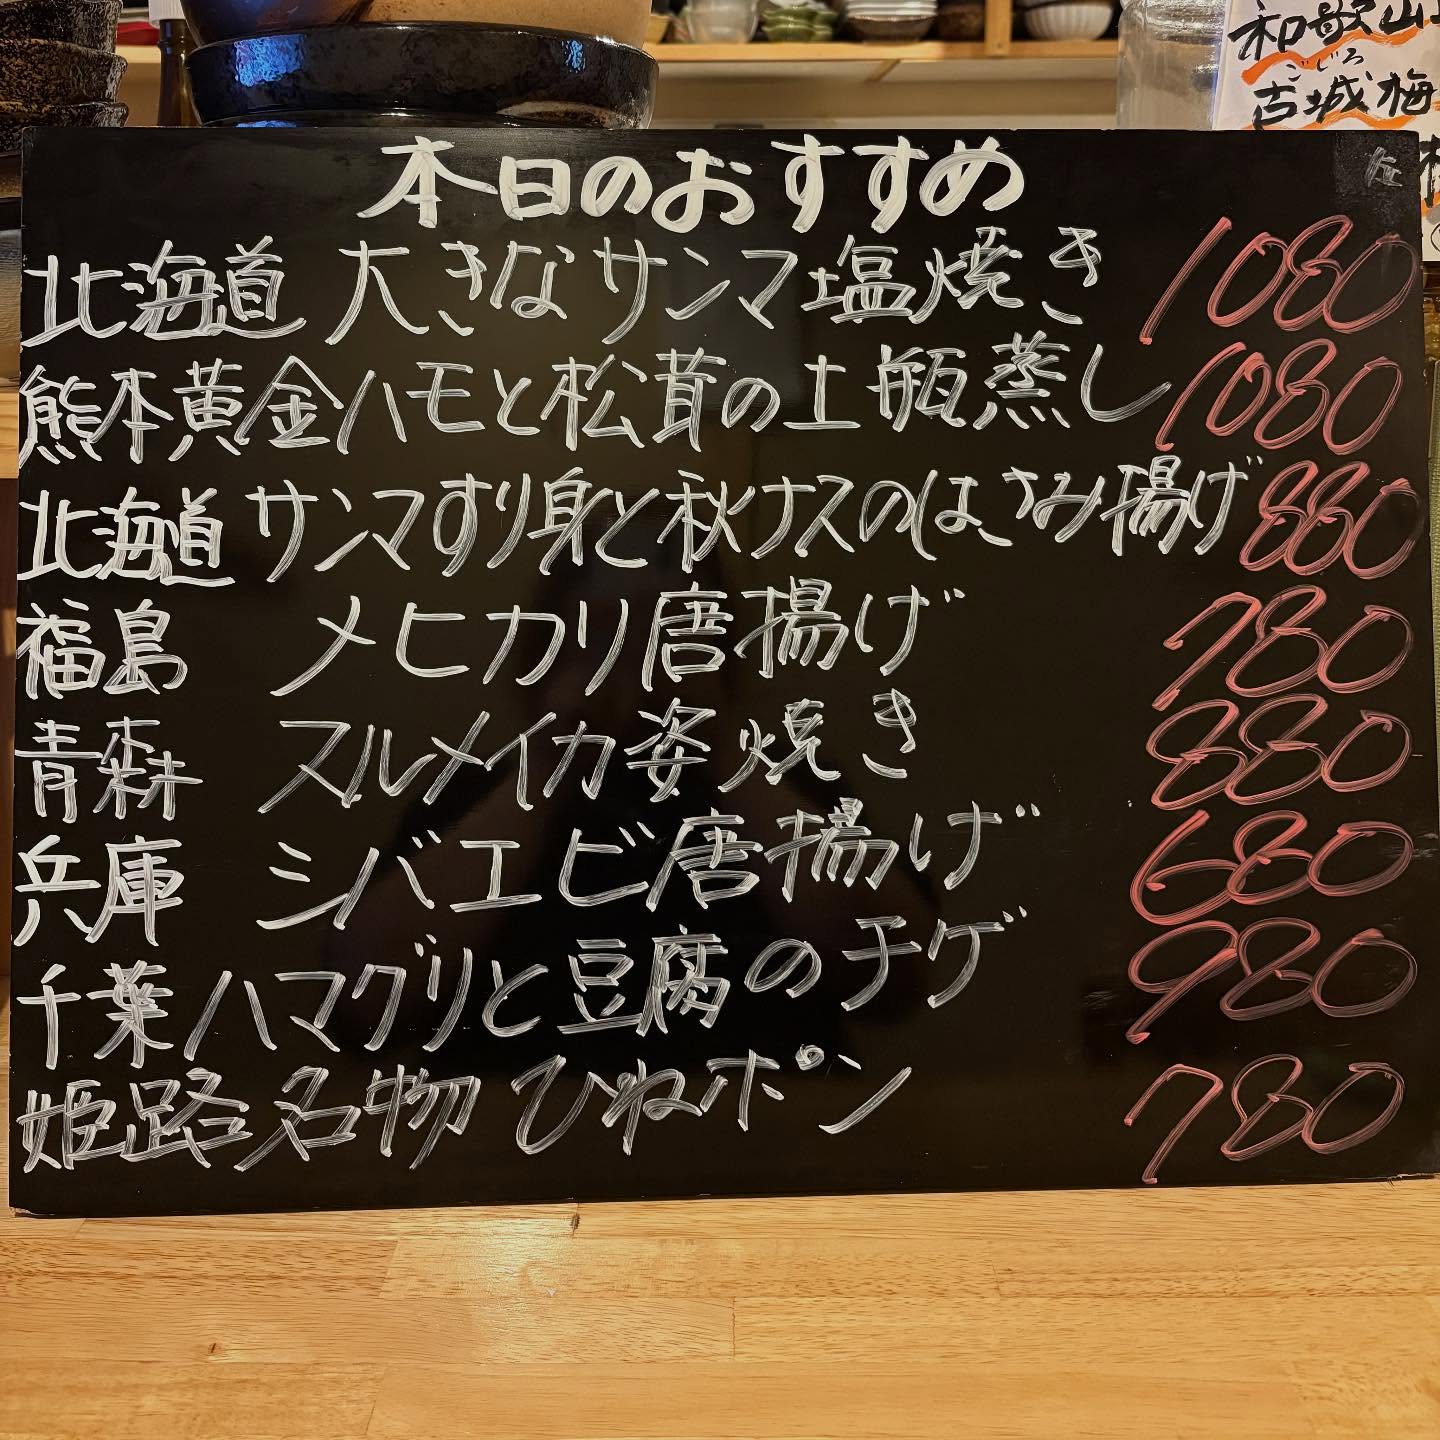 本日のおすすめ
北海道 大きなサンマ塩焼き 1080
熊本黄金ハモと松茸の土瓶蒸し 1080
北海道 サンマすり身と秋ナスのはさみ揚げ 880
福島 メヒカリ唐揚げ 780
青森 スルメイカ姿焼き 880
兵庫 シバエビ唐揚げ 680
千葉 ハマグリと豆腐のチゲ 980
姫路名物 ひねポン 780
和歌山
ごじろ
古城梅